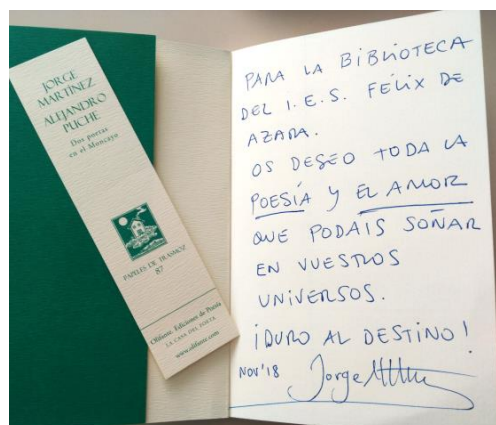 JORGE
MARTÍNEZ
ALEJANDRO
PUCHE
Dos poetas
en el Moncayo
PAPELES DE TRASMOZ
87
Olifante. Ediciones de Poesía
LA CASA DEL POETA
www.olifante.com
PARA LA BIBLIOTECA
DEL I.E.S. FÉLIX DE
AZARA.
OS DESEO TODA LA
POESÍA Y EL AMOR
QUE PODAIS SOÑAR
EN VUESTROS
UNIVERSOS.
¡DURO AL DESTINO!
NOV'18 Jorge